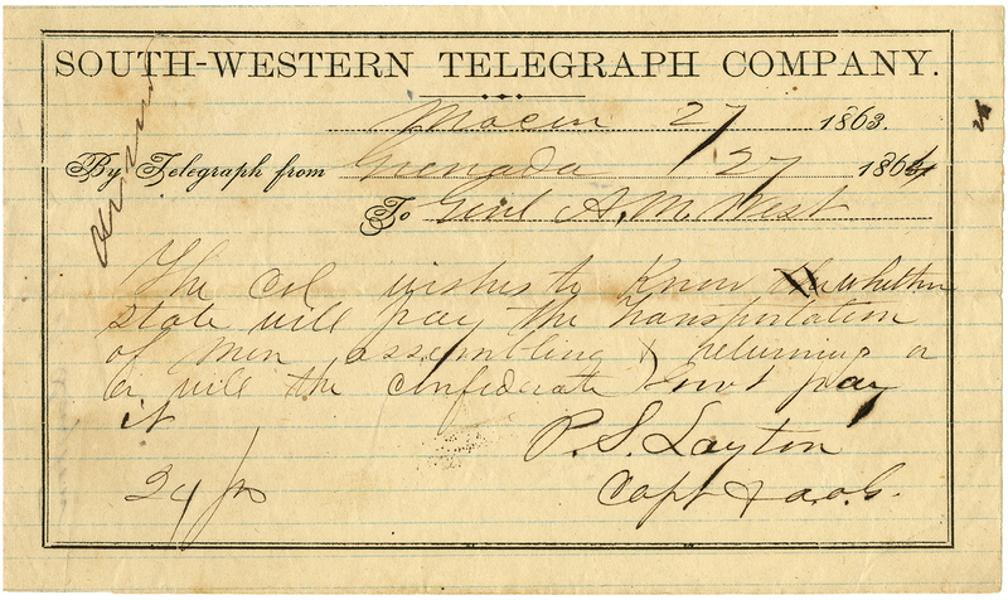 SOUTH-WESTERN TELEGRAPH COMPANY.
Macon 27 1863.
By Telegraph from Grenada 27 1863
To Genl A. M. West
The Col wishes to know whether
state will pay the transportation
of men assembling & returning
or will the confederate Govt pay
it
P. S. Layton
Capt & a.a.G.
24